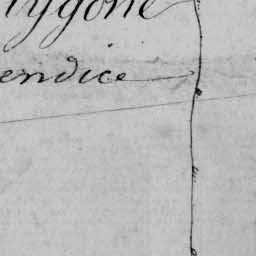 lygone
endice